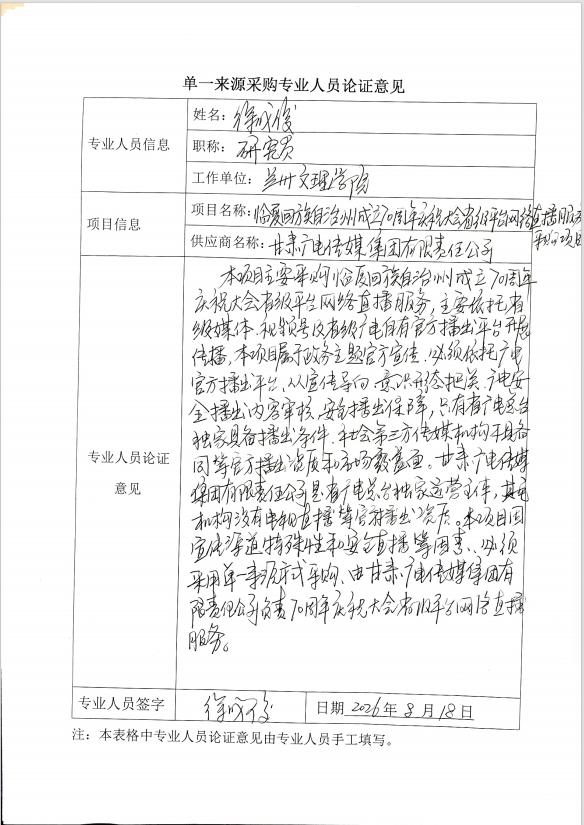 单一来源采购专业人员论证意见
专业人员信息
姓名：徐成俊
职称：研究员
工作单位：兰州文理学院
项目信息
项目名称：临夏回族自治州成立70周年庆祝大会省级平台网络直播服务
采购项目
供应商名称：甘肃广电传媒集团有限责任公司
专业人员论证
意见
本项目主要采购临夏回族自治州成立70周年
庆祝大会省级平台网络直播服务，主要依托省
级媒体、视频号及省级广电自有官方播出平台开展
传播。本项目属于政务主题官方宣传，必须依托广电
官方播出平台，从宣传导向、意识形态把关、广电安
全播出内容审核、安全播出保障，只有省广电总台
独家具备播出条件，社会第三方传媒机构不具备
同等官方播出资质和市场覆盖面。甘肃广电传媒
集团有限责任公司是省广电总台独家运营主体，其它
机构没有电视直播等官方播出资质。本项目因
宣传渠道特殊性和安全直播等因素，必须
采用单一来源方式采购，由甘肃广电传媒集团有
限责任公司负责70周年庆祝大会省级平台网络直播
服务。
专业人员签字
徐成俊
日期 2026年8月18日
注：本表格中专业人员论证意见由专业人员手工填写。